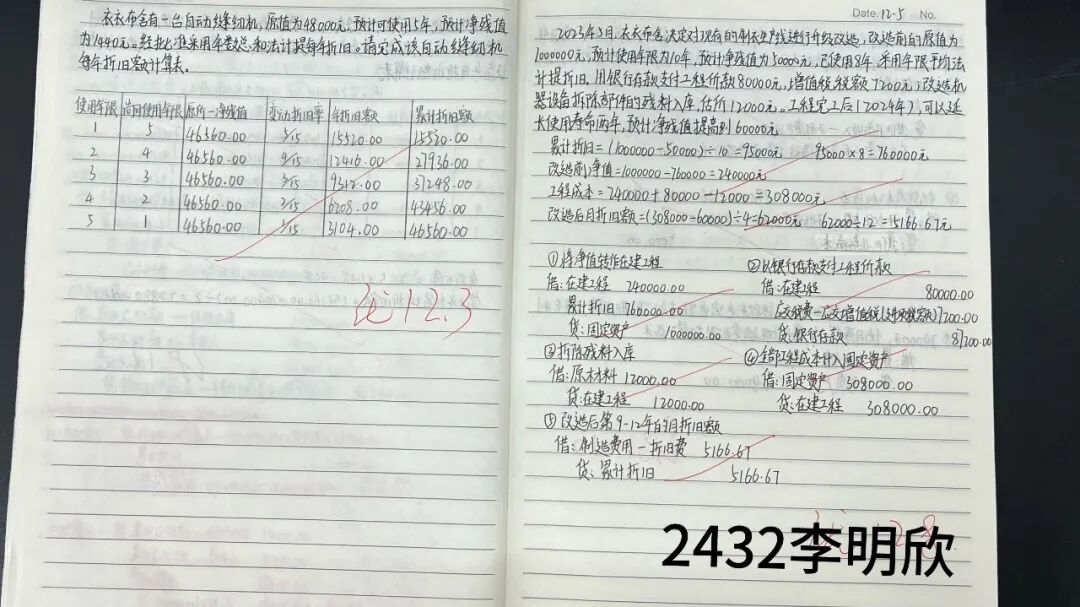 衣衣布舍有一台自动缝纫机,原值为48000元,预计可使用5年,预计净残值
为1440元。经批准采用年数总和法计提每年折旧。请完成该自动缝纫机
每年折旧额计算表。
使用年限 尚可使用年限 原所一净残值 变动折旧率 年折旧额 累计折旧额
1 5 46560.00 5/15 15520.00 15520.00
2 4 46560.00 4/15 12416.00 27936.00
3 3 46560.00 3/15 9312.00 37248.00
4 2 46560.00 2/15 6208.00 43456.00
5 1 46560.00 1/15 3104.00 46560.00
12.3
Date. 12.5 No.
2023年3月,衣衣布舍决定对现有的制衣生产线进行升级改造,改造前的原值为
1000000元,预计使用年限为10年,预计净残值为50000元,已使用8年,采用年限平均法
计提折旧,用银行存款支付工程价款80000元,增值税税额7200元;改造机
器设备拆除部件的残料入库,估价12000元。工程完工后(2024年),可以延
长使用寿命两年,预计净残值提高到60000元
累计折旧=(1000000-50000)÷10=95000元 95000×8=760000元
改造前净值=1000000-760000=240000元
工程成本=240000+80000-12000=308000元
改造后月折旧额=(308000-60000)÷4=62000元 62000÷12=5166.67元
①将净值转作在建工程
借:在建工程 240000.00
累计折旧 760000.00
贷:固定资产 1000000.00
②以银行存款支付工程价款
借:在建工程 80000.00
应交税费一应交增值税(进项税额)7200.00
贷:银行存款 87200.00
③拆除残料入库
借:原材料 12000.00
贷:在建工程 12000.00
④全部工程成本计入固定资产
借:固定资产 308000.00
贷:在建工程 308000.00
⑤改造后第9-12年的月折旧额
借:制造费用一折旧费 5166.67
贷:累计折旧 5166.67
12.8
2432李明欣